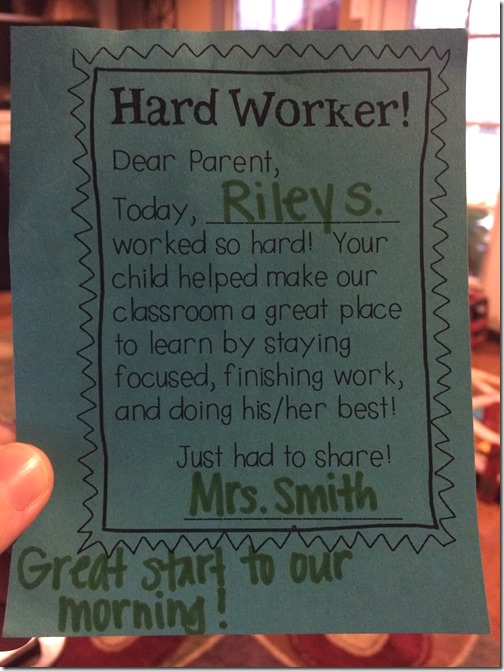 Hard Worker!
Dear Parent,
Today, Riley S.
worked so hard! Your
child helped make our
classroom a great place
to learn by staying
focused, finishing work,
and doing his/her best!
Just had to share!
Mrs. Smith
Great start to our
morning!